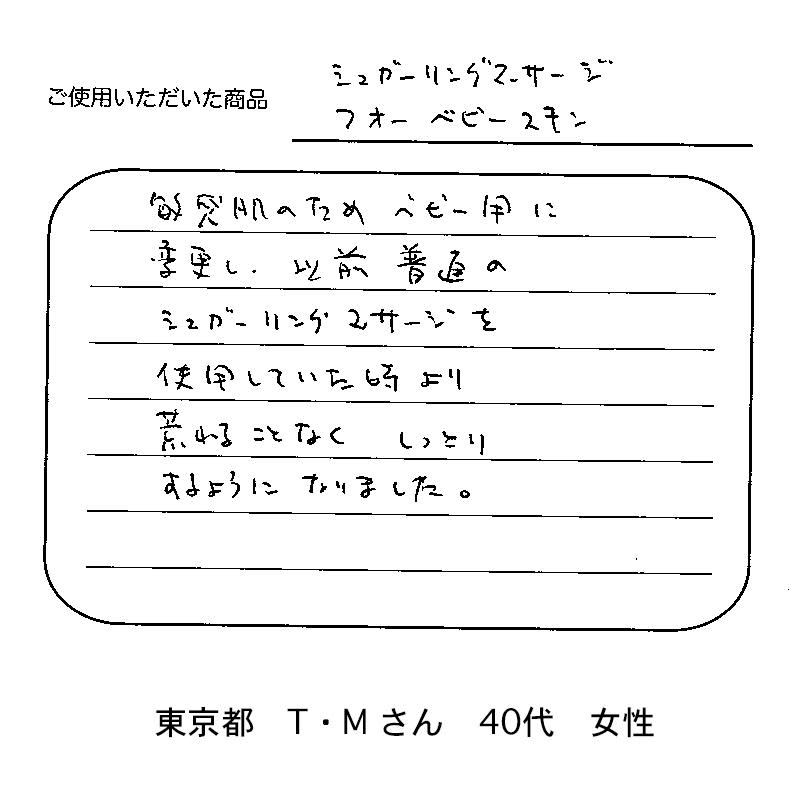 ご使用いただいた商品
シュガーリングマッサージ
フォー ベビースキン
敏感肌のため ベビー用に
変更し、以前 普通の
シュガーリングマッサージを
使用していた時より
荒れることなく しっとり
するように なりました。
東京都 T・Mさん 40代 女性